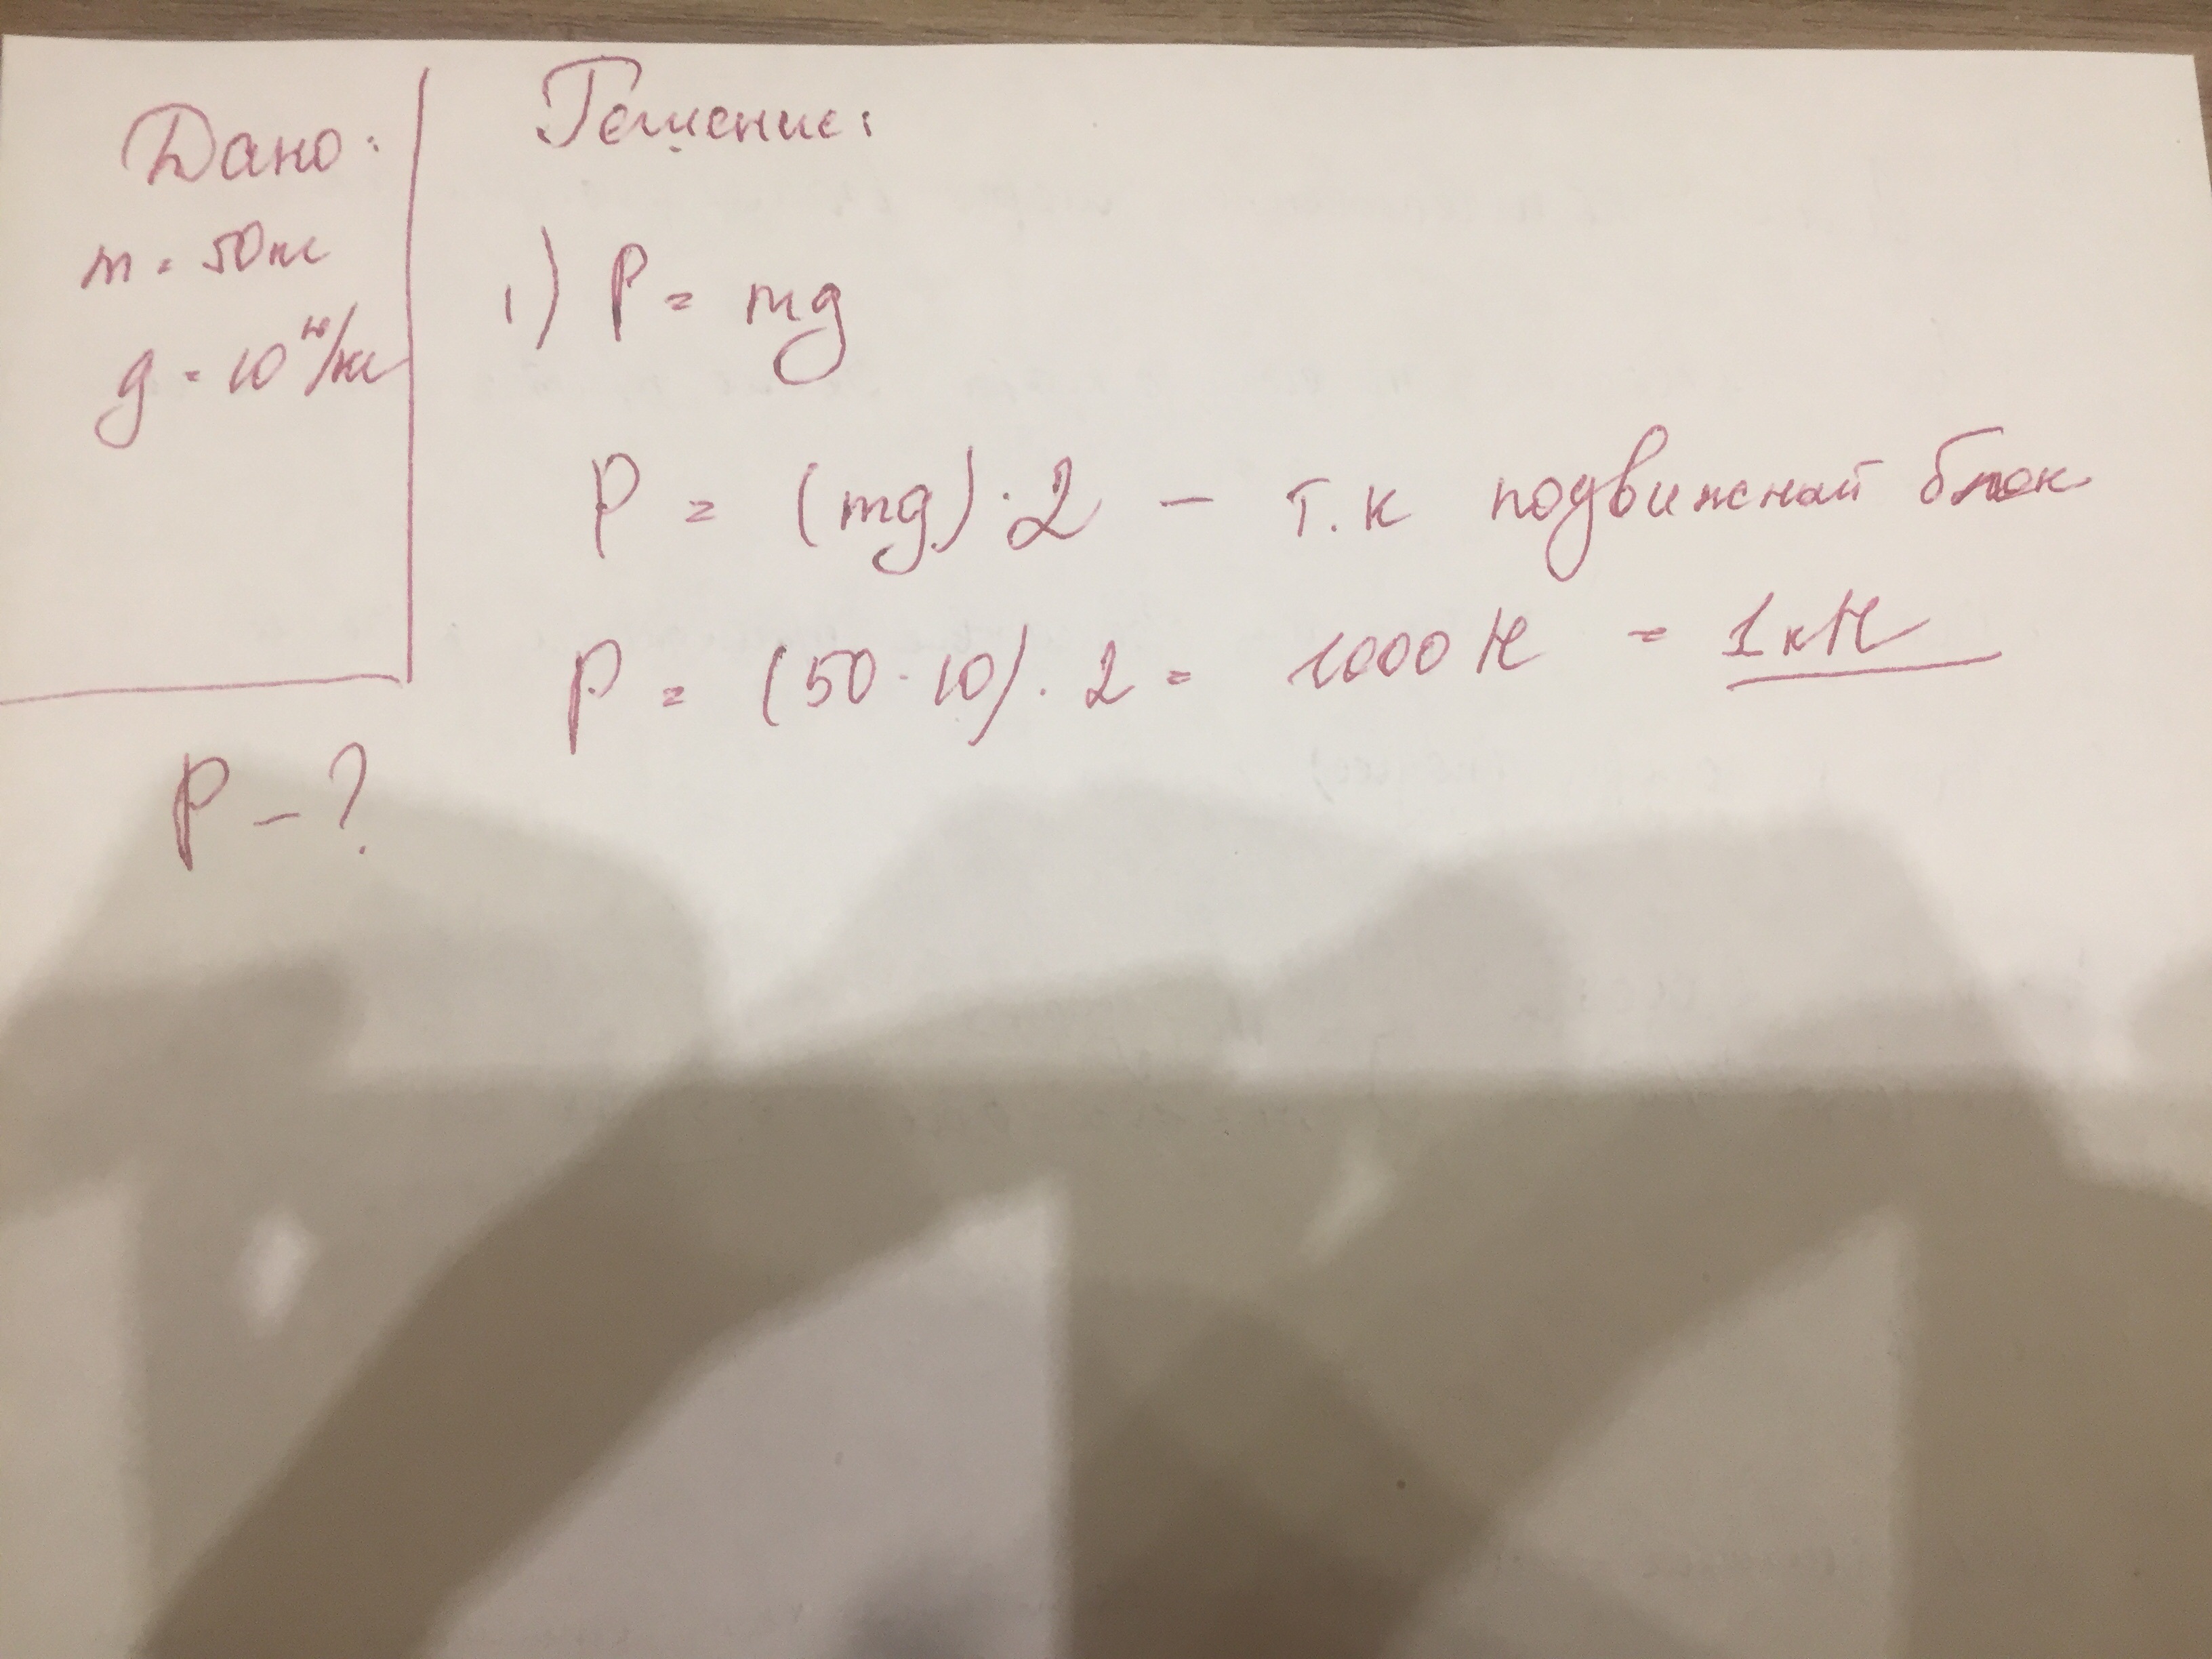 Дано:
m = 50кг
g = 10 Н/кг
P - ?
Решение:
1) P = mg
P = (mg) · 2 - т.к подвижной блок
P = (50 · 10) · 2 = 1000 Н = 1 кН